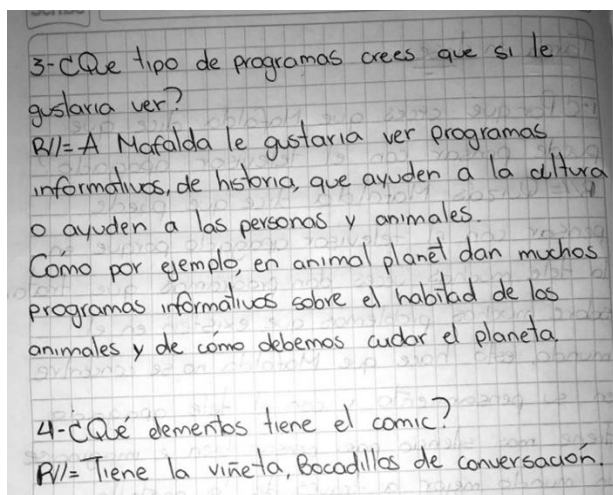 3-¿Que tipo de programas crees que si le
gustaria ver?
R//= A Mafalda le gustaria ver programas
informativos, de historia, que ayuden a la cultura
o ayuden a las personas y animales.
Como por ejemplo, en animal planet dan muchos
programas informativos sobre el habitad de los
animales y de cómo debemos cuidar el planeta.
4-¿Qué elementos tiene el comic?
R//= Tiene la viñeta, Bocadillos de conversación.